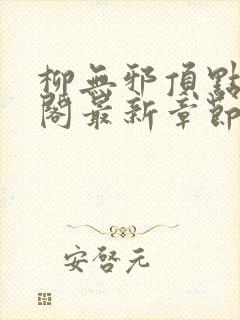 柳無邪頂點
閣最新章節
安啓元